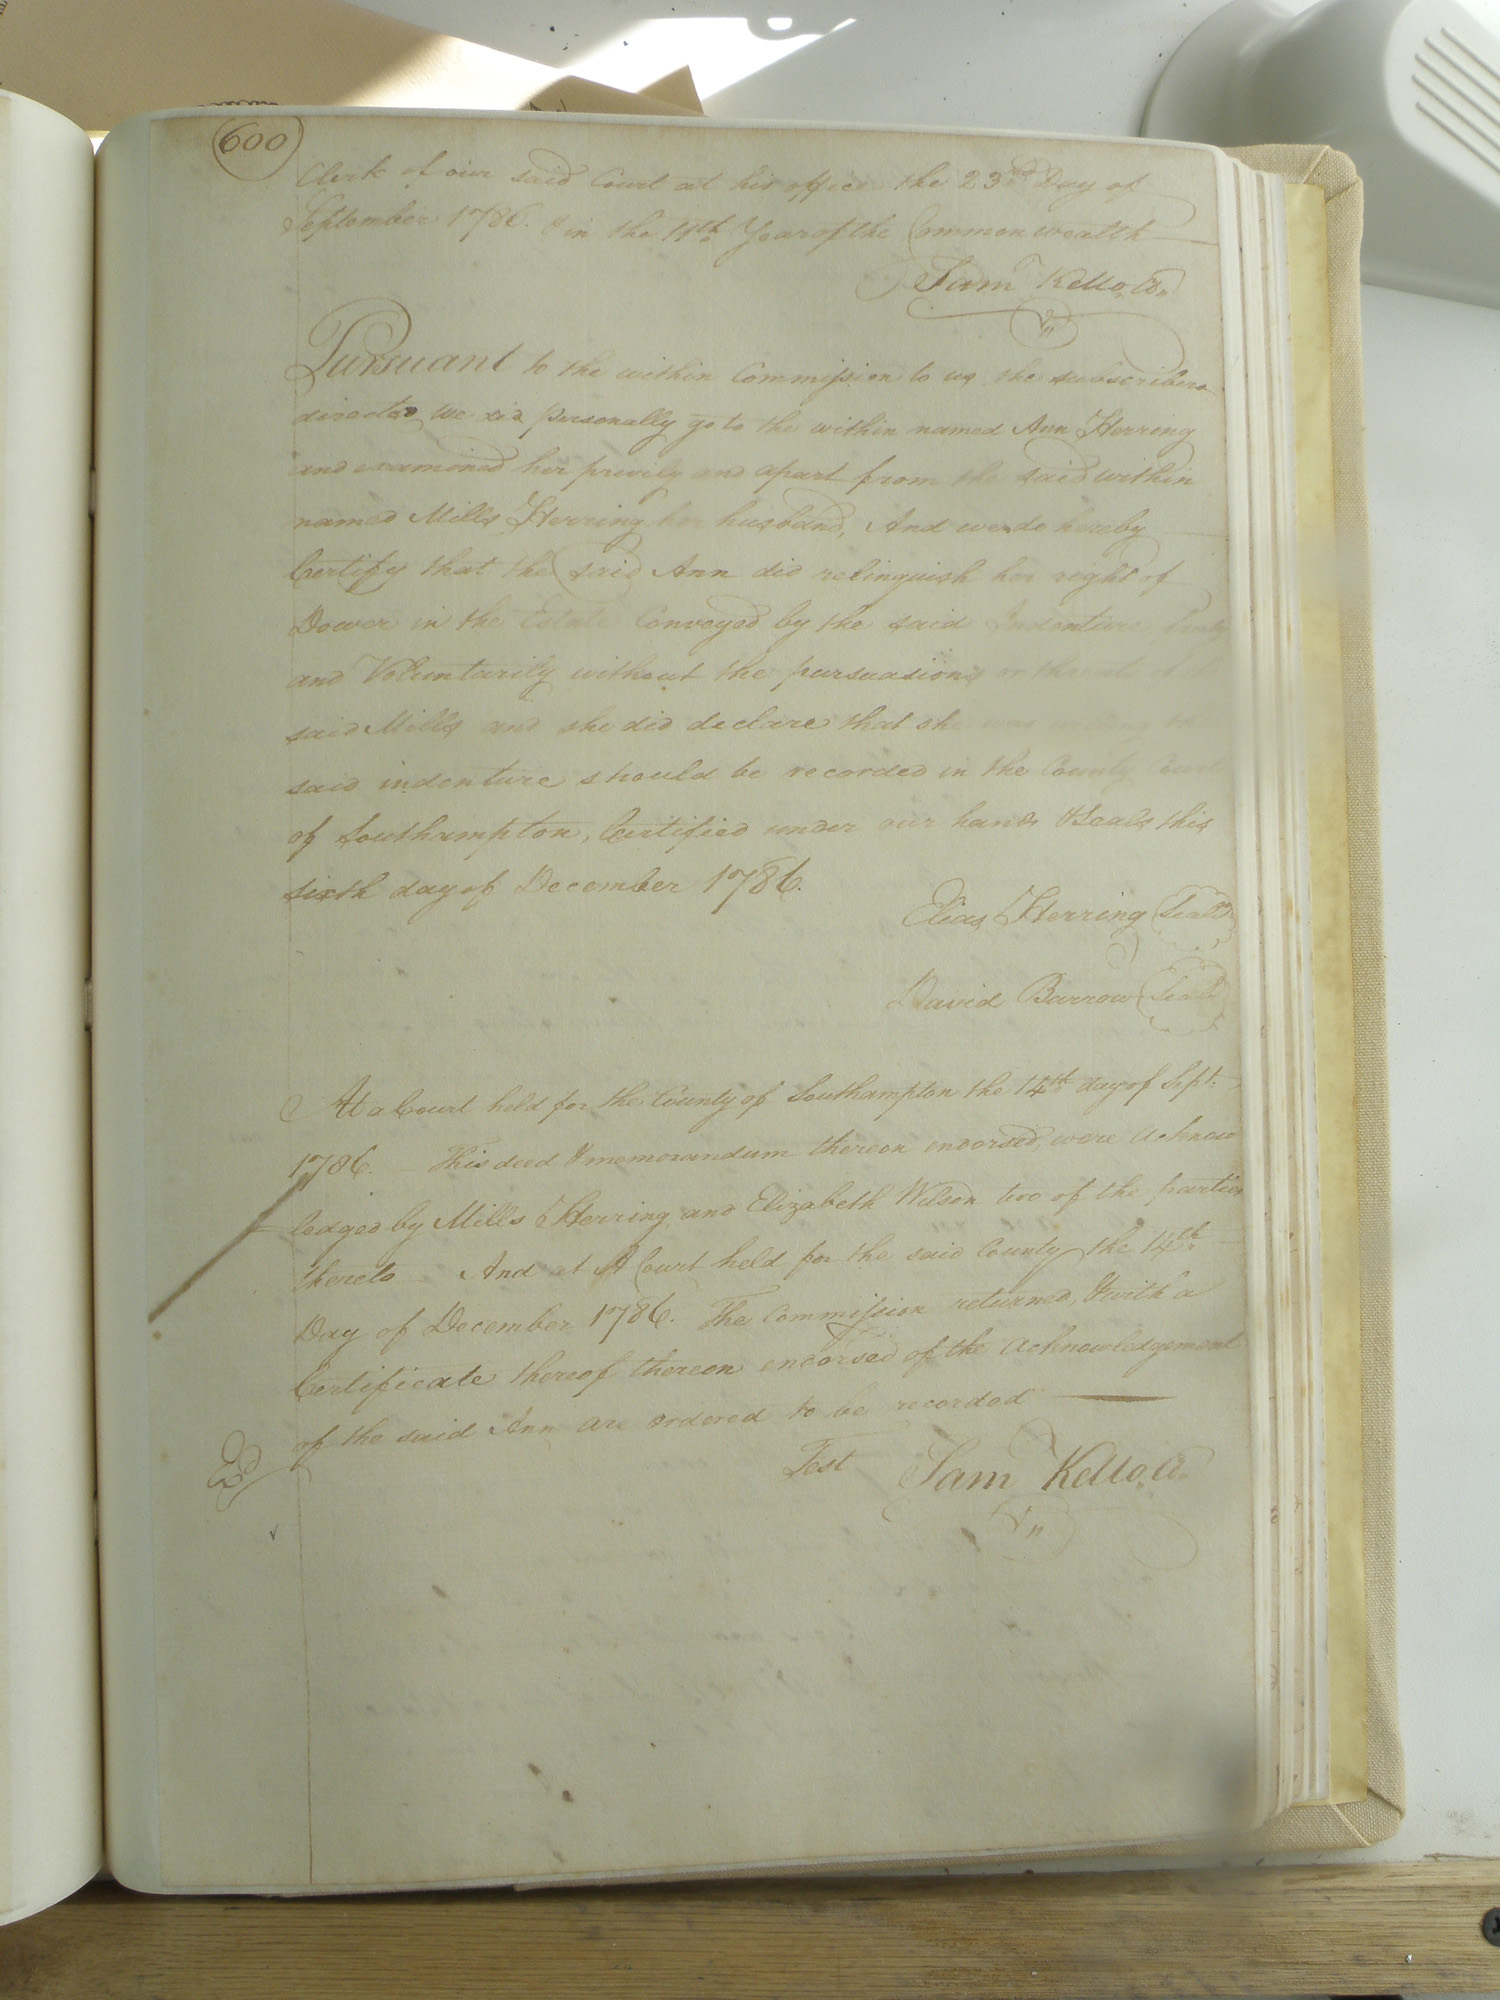 600
Clerk of our said Court at his office the 23rd Day of
September 1786. & in the 11th Year of the Commonwealth
Saml Kello, Ck
Pursuant to the within Commission to us the subscribers
directed, we did personally go to the within named Ann Herring
and examined her privily and apart from the said within
named Mills Herring her husband, And we do hereby
Certify that the said Ann did relinquish her right of
Dower in the Estate Conveyed by the said Indenture freely
and Voluntarily without the pursuasions or threats of the
said Mills and she did declare that she was willing the
said indenture should be recorded in the County Court
of Southampton, Certified under our hands & Seals this
sixth day of December 1786.
Elias Herring Seal
David Barrow Seal
At a Court held for the County of Southampton the 14th day of Sept:
1786. This deed & memorandum thereon endorsed were acknow
ledged by Mills Herring and Elizabeth Wilson two of the parties
thereto And at A Court held for the said County the 14th
Day of December 1786. The Commission returned, & with a
Certificate thereof thereon endorsed of the acknowledgement
of the said Ann are ordered to be recorded
Test Saml Kello, Ck